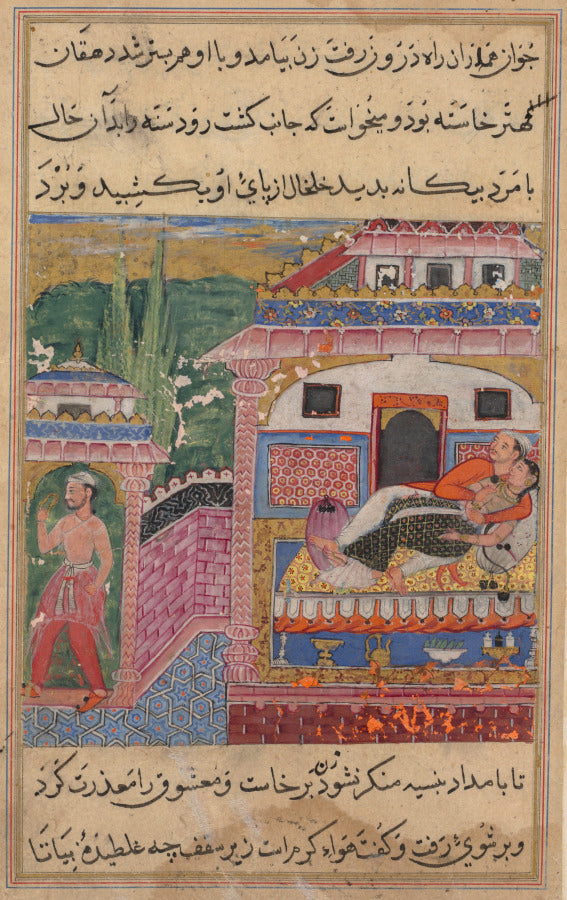 جوان هم بدان راه درون رفت زن بیامد و با او همبستر شد دهقان
مهتر خاسته بود و میخواست که جانب کشت رود را بدان حال
با مرد بیکانه بدید خلخال از پای او بکشید و ببرد
تا بامداد منکر نشود زن برخاست و معشوق را معذرت کرد
و بر شوئ رفت و کفت هواء کرم است زیر سقف چه غلطیدۀ بیا تا